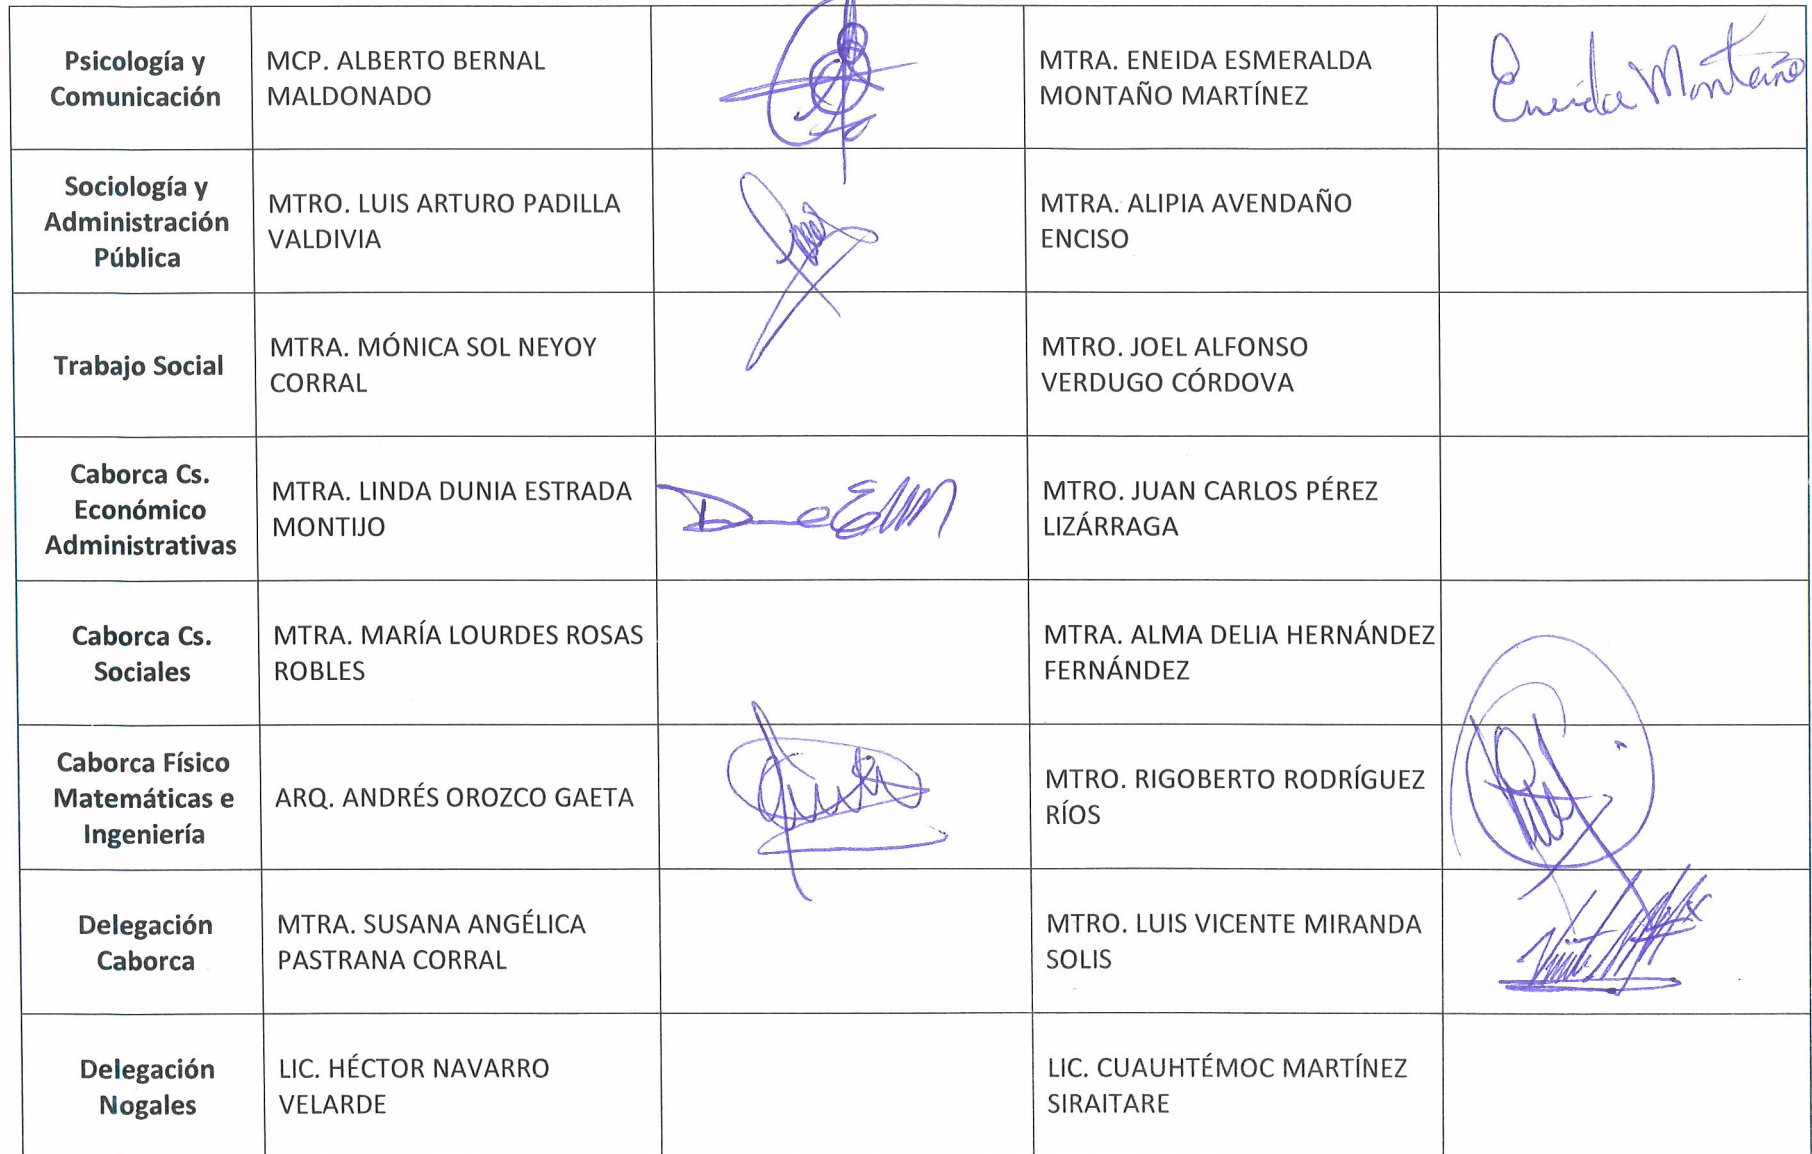 Psicología y
Comunicación
MCP. ALBERTO BERNAL
MALDONADO
MTRA. ENEIDA ESMERALDA
MONTAÑO MARTÍNEZ
Eneida Montaño
Sociología y
Administración
Pública
MTRO. LUIS ARTURO PADILLA
VALDIVIA
MTRA. ALIPIA AVENDAÑO
ENCISO
Trabajo Social
MTRA. MÓNICA SOL NEYOY
CORRAL
MTRO. JOEL ALFONSO
VERDUGO CÓRDOVA
Caborca Cs.
Económico
Administrativas
MTRA. LINDA DUNIA ESTRADA
MONTIJO
MTRO. JUAN CARLOS PÉREZ
LIZÁRRAGA
Caborca Cs.
Sociales
MTRA. MARÍA LOURDES ROSAS
ROBLES
MTRA. ALMA DELIA HERNÁNDEZ
FERNÁNDEZ
Caborca Físico
Matemáticas e
Ingeniería
ARQ. ANDRÉS OROZCO GAETA
MTRO. RIGOBERTO RODRÍGUEZ
RÍOS
Delegación
Caborca
MTRA. SUSANA ANGÉLICA
PASTRANA CORRAL
MTRO. LUIS VICENTE MIRANDA
SOLIS
Delegación
Nogales
LIC. HÉCTOR NAVARRO
VELARDE
LIC. CUAUHTÉMOC MARTÍNEZ
SIRAITARE